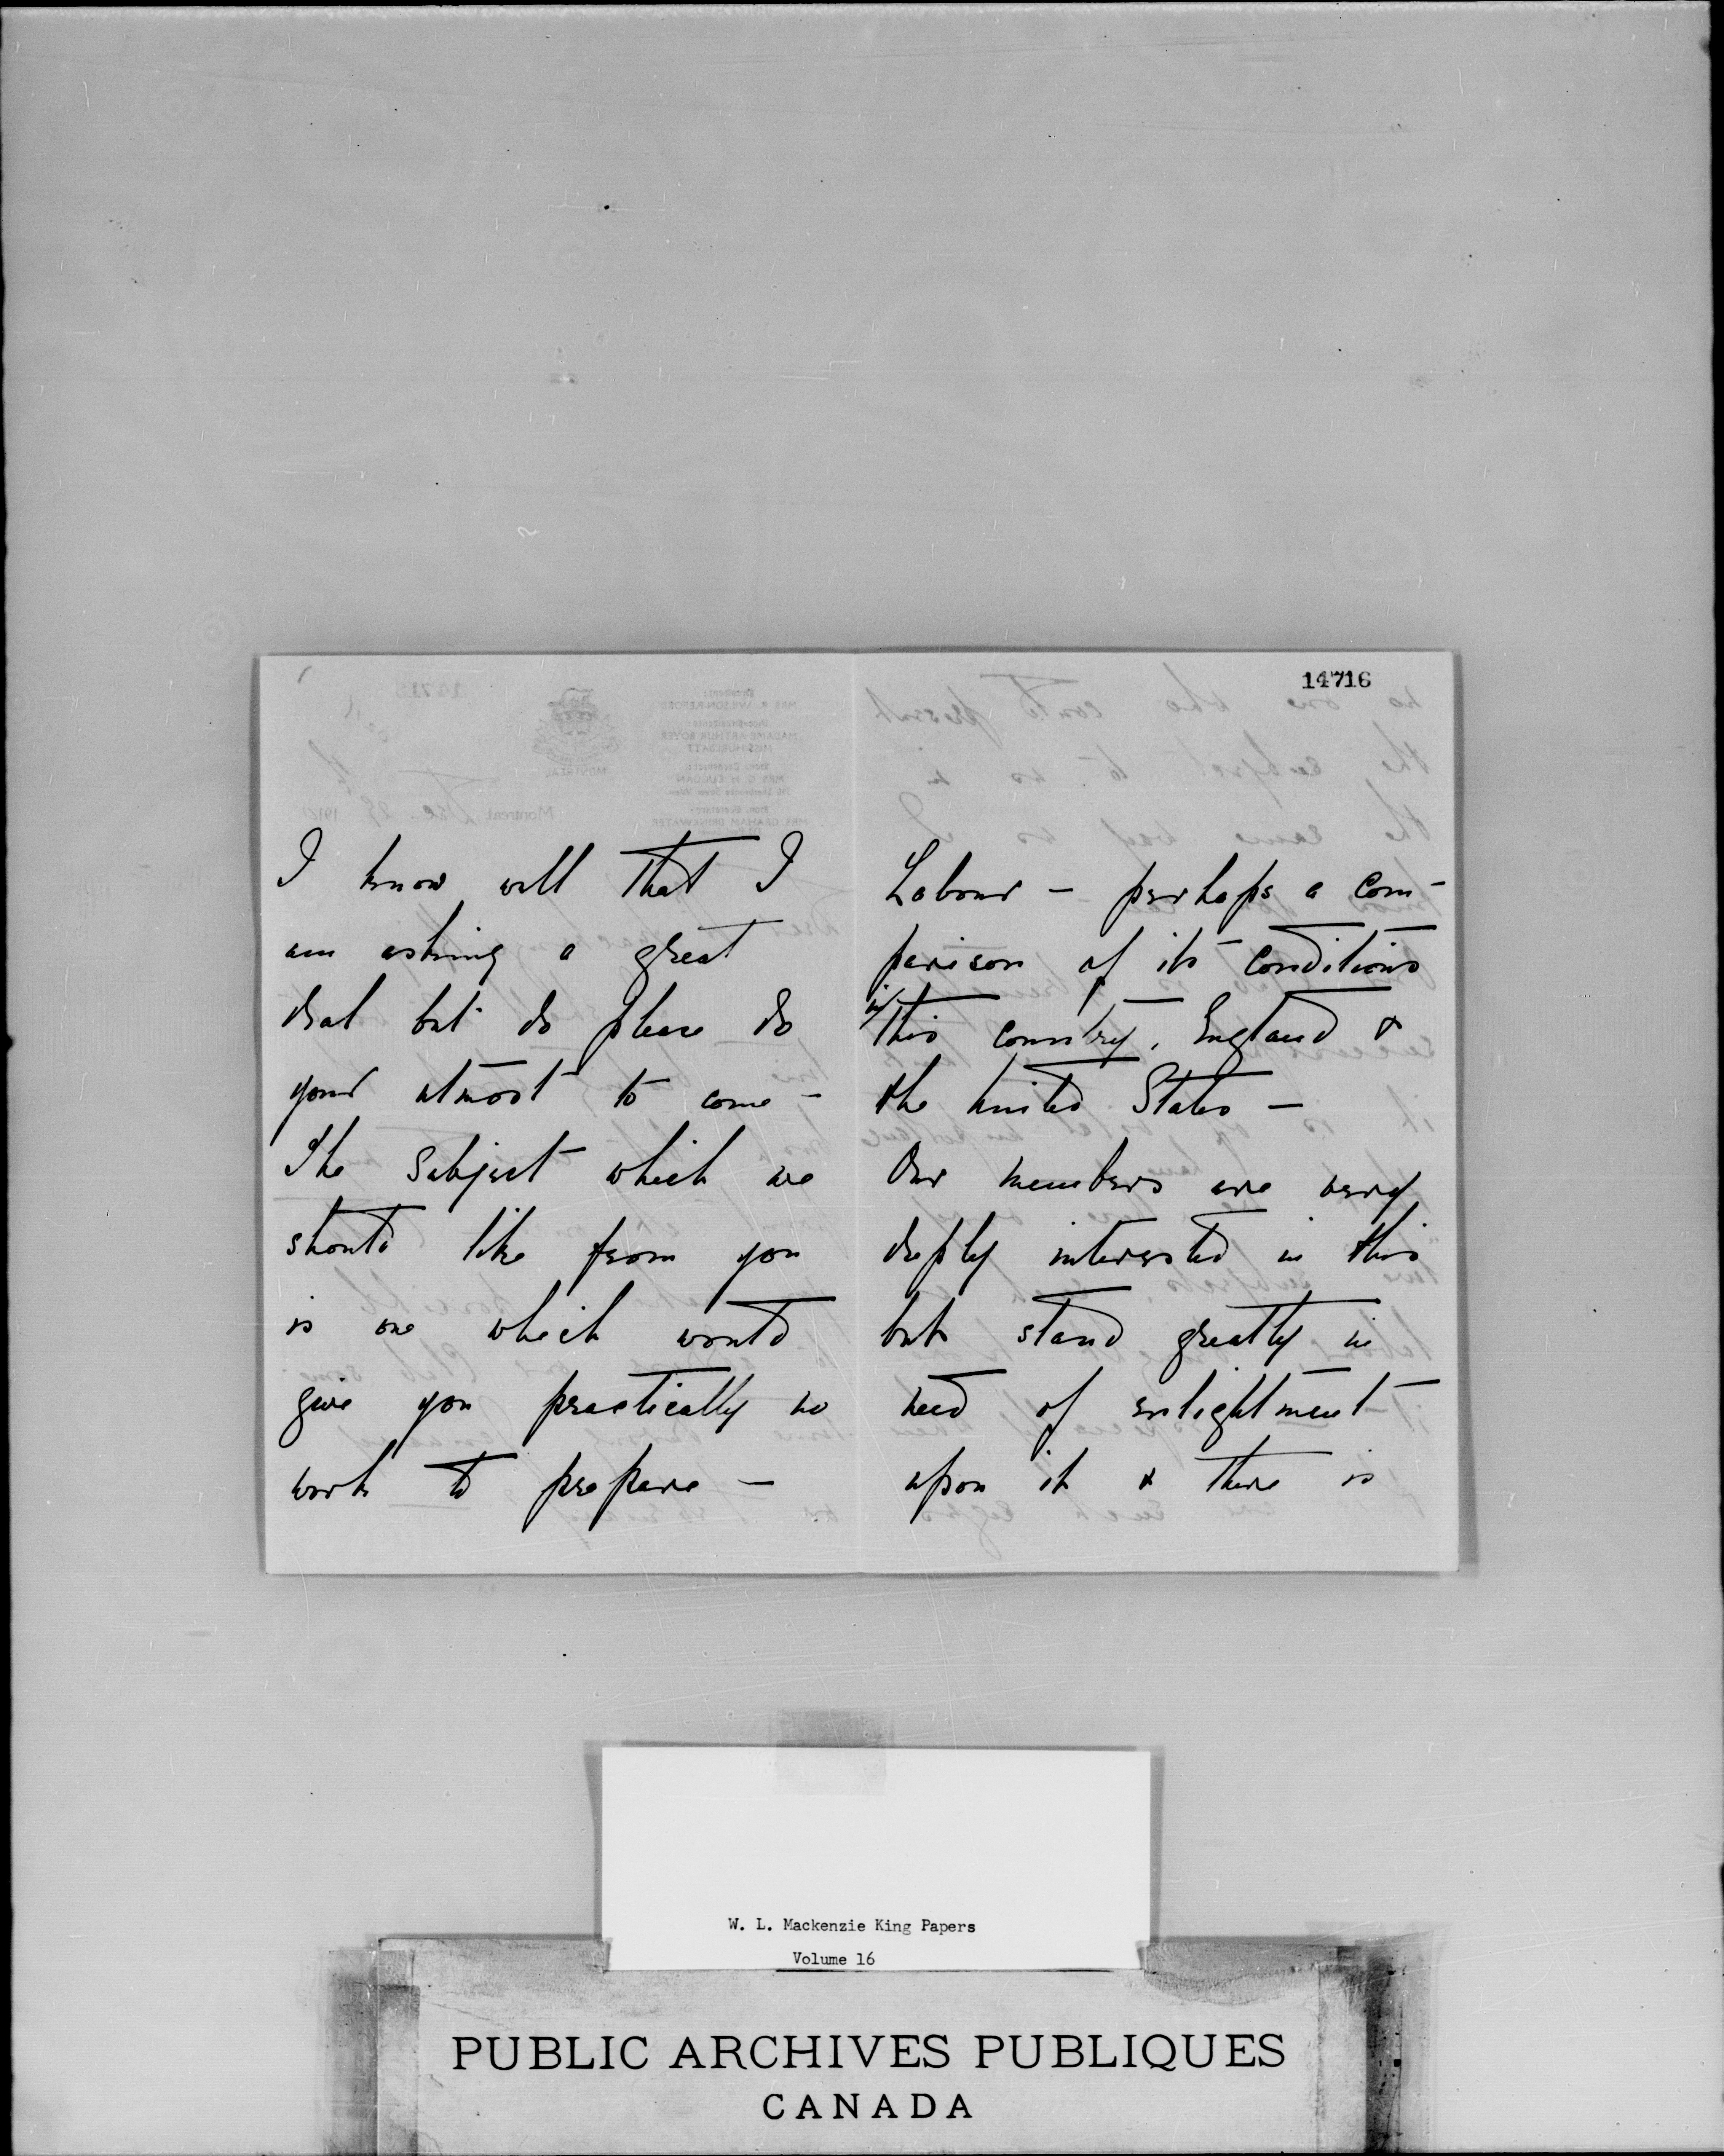 14716
I know well that I
am asking a great
deal but do please do
your utmost to come –
The Subject which we
should like from you
is one which would
give you practically no
work to prepare –
Labour – perhaps a com-
parison of its conditions
in this country, England &
the United States –
Our members are very
deeply interested in this
but stand greatly in
need of enlightment
upon it & there is
W. L. Mackenzie King Papers
Volume 16
PUBLIC ARCHIVES PUBLIQUES
CANADA